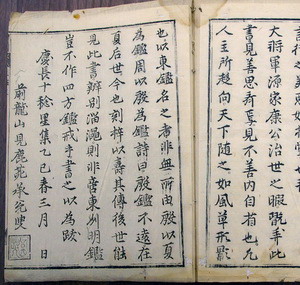 大将軍源家康公治世之暇翫弄此
書見善思斉焉見不善内自省也凡
人主所趨向天下随之如風草形影
也以東鑑名之者非無所由殷以夏
為鑑周以殷為鑑詩曰殷鑑不遠在
夏后世今也刻梓以壽其傳後世能
見此書辨別淄澠則非啻東州明鑑
豈不作四方鑑戒手書之以為跋
慶長十稔星集乙巳春三月 日
前龍山見鹿苑承兌叟